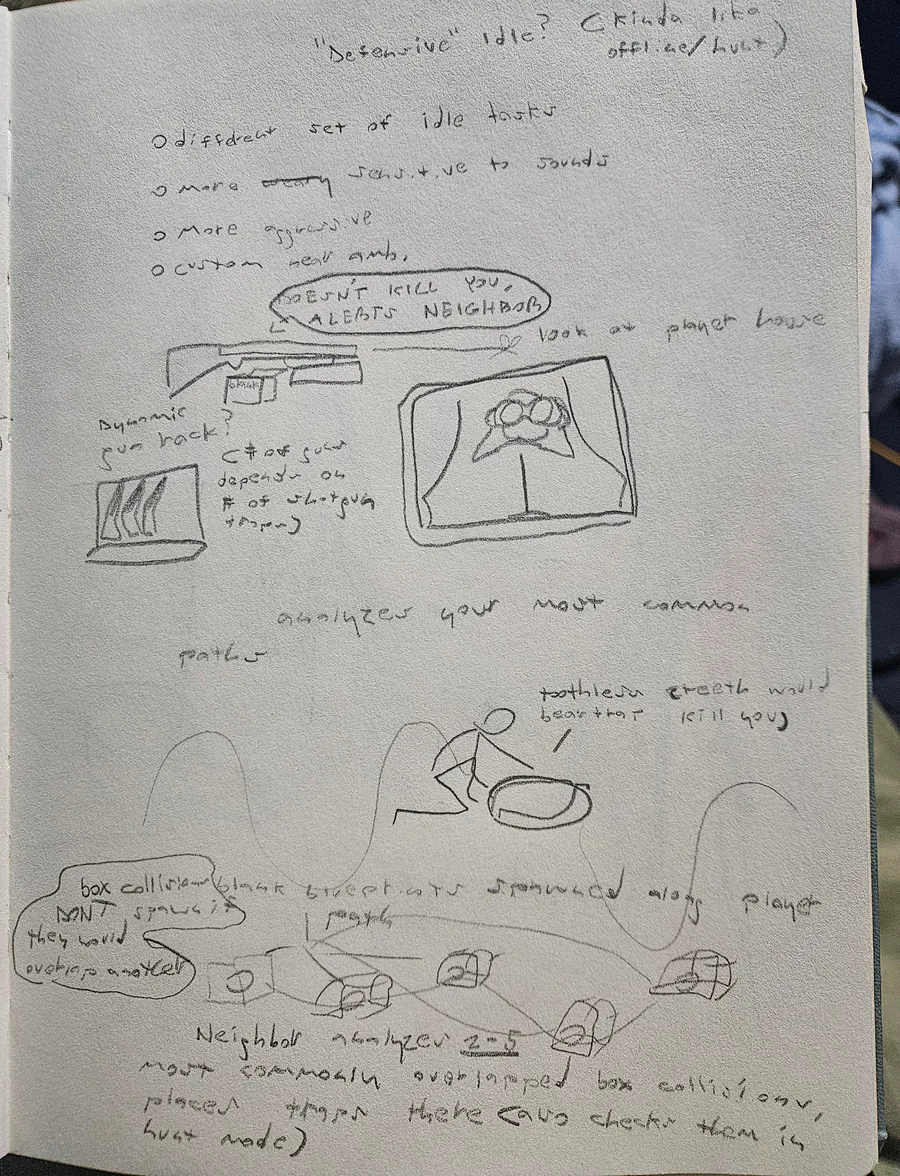 "Defensive" Idle? (kinda like
offline/hunt)
o different set of idle tasks
o More weary sensitive to sounds
o More aggressive
o custom near amb.
DOESN'T KILL YOU,
ALERTS NEIGHBOR
look at player house
blank
Dynamic
gun rack?
(# of guns
depends on
# of shotgun
traps)
analyzes your most common
paths
toothless (teeth would
beartrap kill you)
box collisions
DON'T spawn if
they would
overlap another
blank blueprints spawned along player
path
Neighbor analyzes 2-5
most commonly overlapped box collisions,
places traps there (also checks them in
hunt mode)